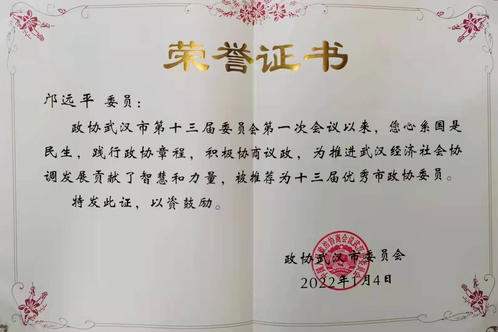 荣誉证书
邝远平 委员:
政协武汉市第十三届委员会第一次会议以来,您心系国是
民生,践行政协章程,积极协商议政,为推进武汉经济社会协
调发展贡献了智慧和力量,被推荐为十三届优秀市政协委员。
特发此证,以资鼓励。
政协武汉市委员会
2022年1月4日